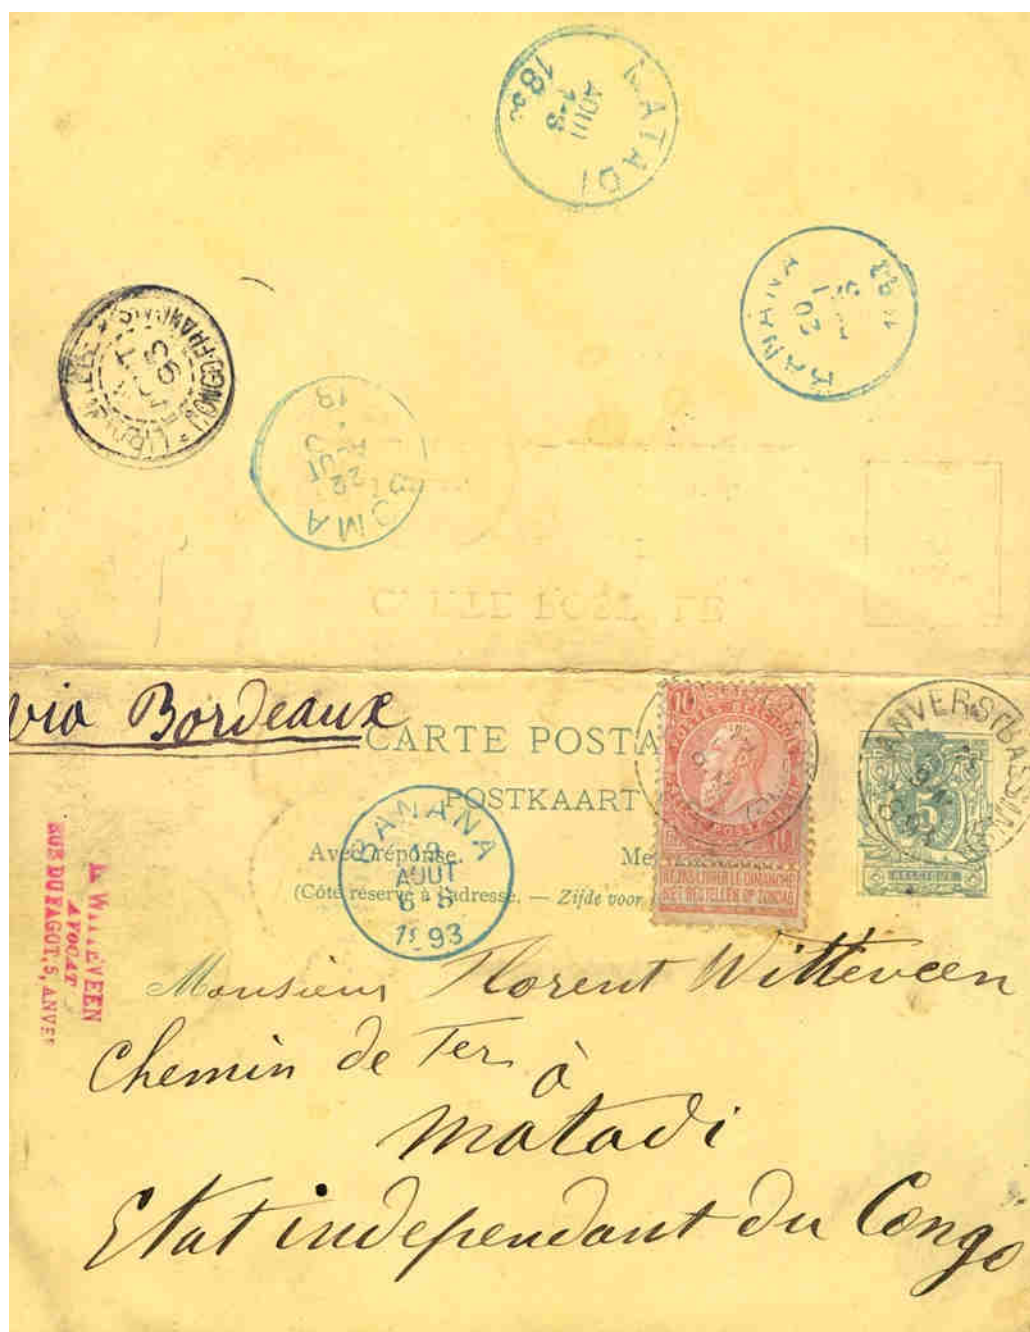 MATADI
AOUT
18
BANANA
LIBREVILLE
CONGO-FRANÇAIS
BOMA
22
AOUT
18
via Bordeaux
CARTE POSTA
POSTKAART
Avec réponse.
(Côté réservé à l'adresse. — Zijde voor
10
POSTES BELGIQUE
10
NE PAS LIVRER LE DIMANCHE
NIET BESTELLEN OP ZONDAG
ANVERS (BASSINS)
5
BELGIQUE
BANANA
AOUT
93
WITTEVEEN
AVOCAT
RUE DU FAGOT, 5, ANVE
Monsieur Florent Witteveen
Chemin de Fer
à
Matadi
Etat independant du Congo